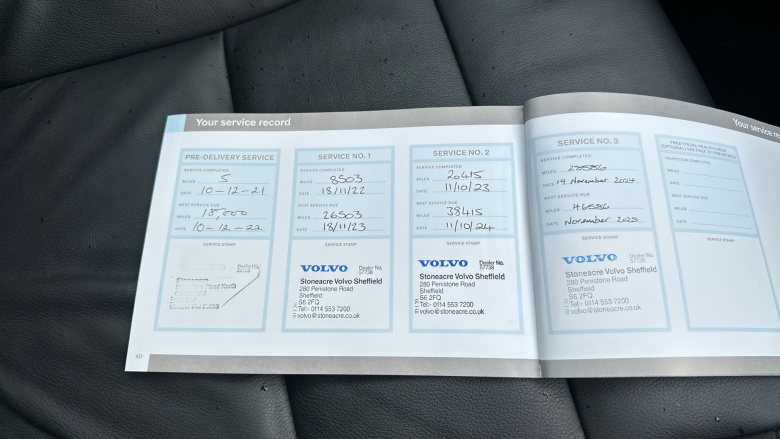 Your service record
Your service re
PRE-DELIVERY SERVICE
SERVICE COMPLETED
MILES 5
DATE 10-12-21
NEXT SERVICE DUE
MILES 18,000
DATE 10-12-22
SERVICE STAMP
Dealer No.
SERVICE NO. 1
SERVICE COMPLETED
MILES 8503
DATE 18/11/22
NEXT SERVICE DUE
MILES 26503
DATE 18/11/23
SERVICE STAMP
VOLVO Dealer No. 57738
Stoneacre Volvo Sheffield
280 Penistone Road
Sheffield
S6 2FQ
Tel:- 0114 553 7200
volvo@stoneacre.co.uk
SERVICE NO. 2
SERVICE COMPLETED
MILES 20415
DATE 11/10/23
NEXT SERVICE DUE
MILES 38415
DATE 11/10/24
SERVICE STAMP
VOLVO Dealer No. 57738
Stoneacre Volvo Sheffield
280 Penistone Road
Sheffield
S6 2FQ
Tel:- 0114 553 7200
volvo@stoneacre.co.uk
SERVICE NO. 3
SERVICE COMPLETED
MILES
DATE 19 November 2024
NEXT SERVICE DUE
MILES 46586
DATE November 2025
SERVICE STAMP
VOLVO Dealer No. 57738
Stoneacre Volvo Sheffield
280 Penistone Road
Sheffield
S6 2FQ
Tel:- 0114 553 7200
volvo@stoneacre.co.uk
FREE VISUAL HEALTH CHECK
(OPTIONAL) SEE PAGE 37 FOR DETAILS
INSPECTION COMPLETED
MILES
DATE
NEXT SERVICE DUE
MILES
DATE
SERVICE STAMP
40